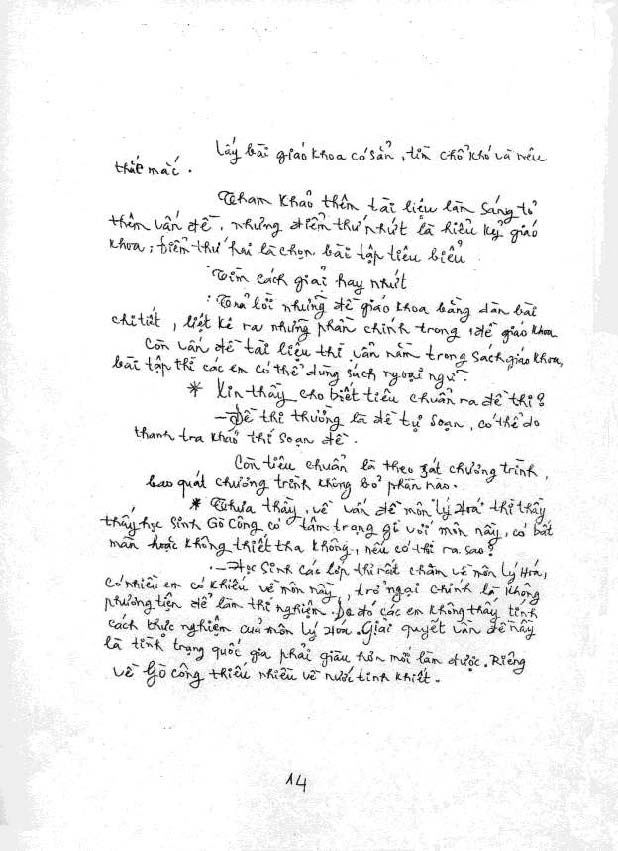 Lấy bài giáo khoa có sẵn, tìm chổ khó và nêu
thắc mắc.
Tham khảo thêm tài liệu làm sáng tỏ
thêm vấn đề, nhưng điểm thứ nhứt là hiểu kỷ giáo
khoa; điểm thứ hai là chọn bài tập tiêu biểu
Tìm cách giải hay nhứt
Trả lời những đề giáo khoa bằng dàn bài
chi tiết, liết kê ra những phần chính trong đề giáo khoa
Còn vấn đề tài liệu thì vẫn nằm trong sách giáo khoa,
bài tập thì các em có thể dùng sách ngoại ngữ.
* Xin thầy cho biết tiêu chuẩn ra đề thi?
- Đề thi thường là đề tự soạn, có thể do
thanh tra khảo thí soạn đề.
Còn tiêu chuẩn là theo sát chương trình,
bao quát chương trình không bỏ phần nào.
* Thưa thầy, về vấn đề môn Lý Hoá thì thầy
thấy học sinh Gò Công có tâm trạng gì với môn nầy, có bất
mãn hoặc không thiết tha không, nếu có thì ra sao?
- Học sinh các lớp thi rất chăm về môn Lý Hóa,
có nhiều em có khiếu về môn nầy, trở ngại chính là không
phương tiện để làm thí nghiệm. Do đó các em không thấy tính
cách thực nghiệm của môn Lý Hóa. Giải quyết vấn đề nầy
là tình trạng quốc gia phải giàu hơn mới làm được. Riêng
về Gò Công thiếu nhiều về nước tinh khiết.
14